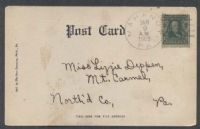 Post Card
JAN
9
A.M.
PA.
Miss Lizzie Deppen,
Mt. Carmel,
North'd Co,
Pa.
THIS SIDE FOR THE ADDRESS